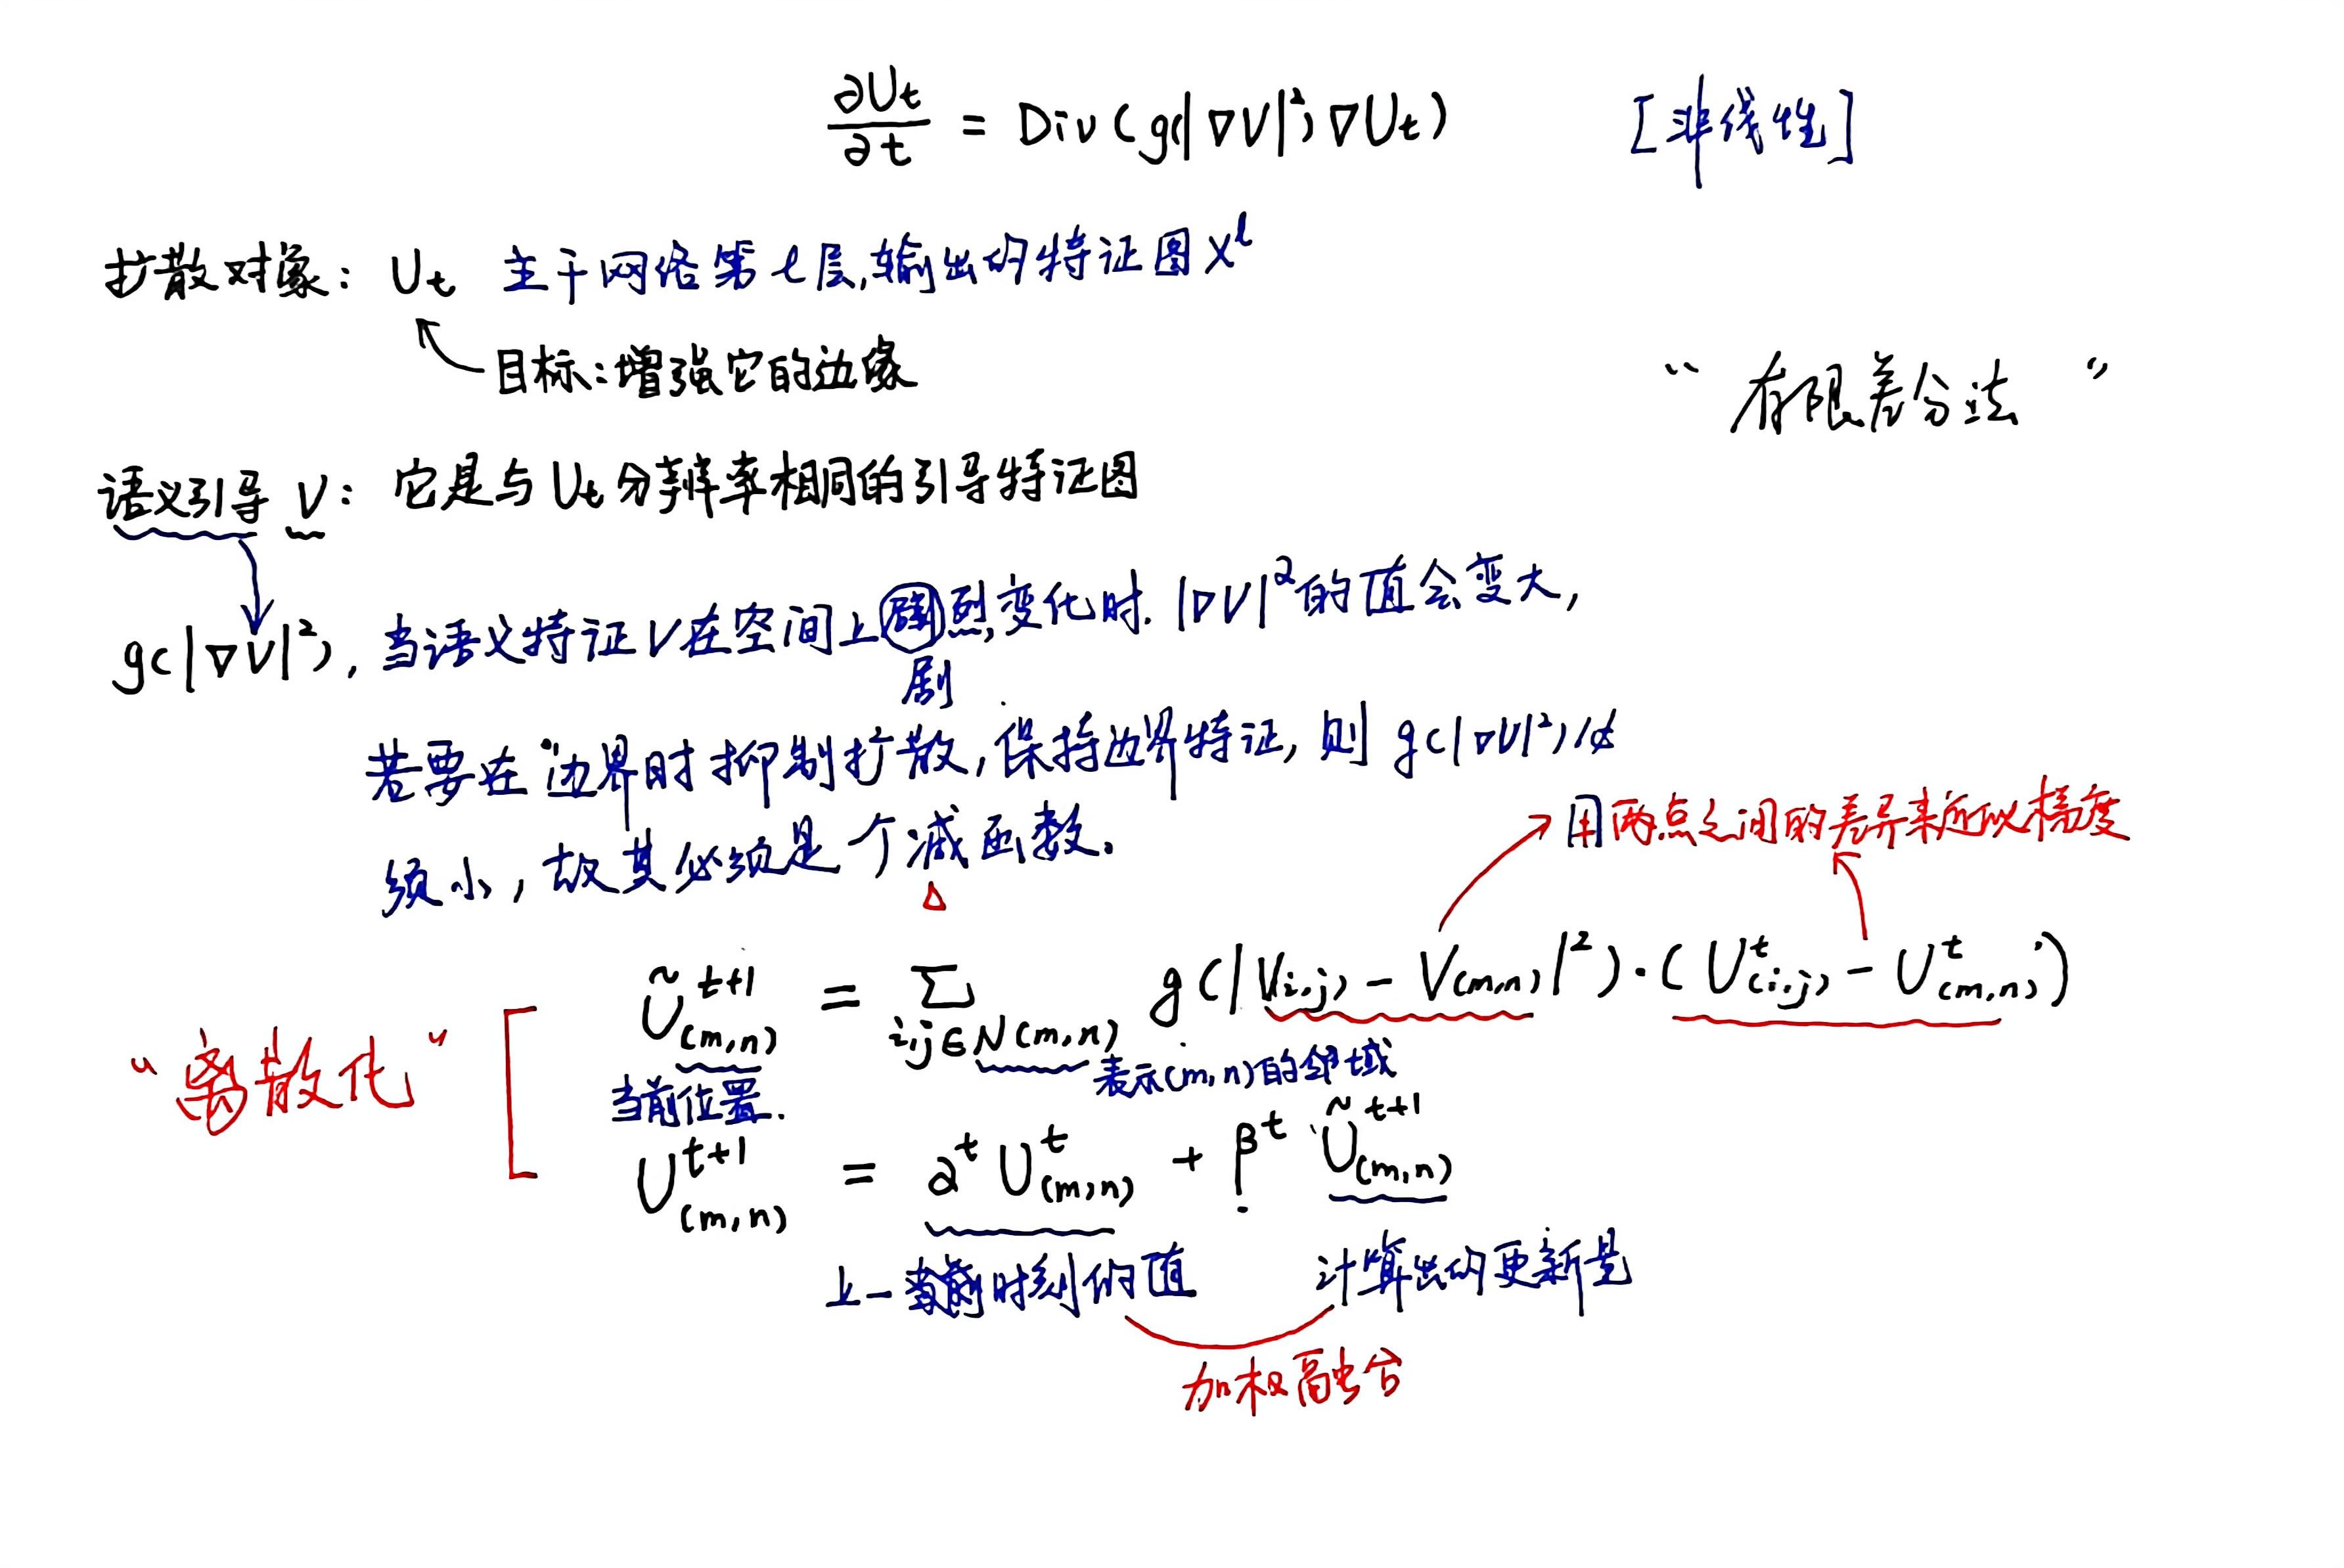 ∂Ut/∂t = Div(g(|∇V|²)∇Ut) [非线性]
扩散对象: Ut 主干网络第七层,输出的特征图 Xˡ
目标:增强它的边缘
“有限差分法”
语义引导 V: 它是与Ut分辨率相同的引导特征图
g(|∇V|²), 当语义特征V在空间上烈变化时. |∇V|²的值会变大,
剧
若要在边界时抑制扩散,保持边界特征,则 g(|∇V|²)
须小,故其必须是个减函数。
用两点之间的差异来近似梯度
Ũ^{t+1}_{(m,n)} = Σ_{i,j∈N(m,n)} g(|V(i,j) - V(m,n)|²)·(U^t_{(i,j)} - U^t_{(m,n)})
“离散化”
当前位置.
表示(m,n)的邻域
U^{t+1}_{(m,n)} = a^t U^t_{(m,n)} + β^t Ũ^{t+1}_{(m,n)}
上一时刻的值 计算出的更新是
加权融合